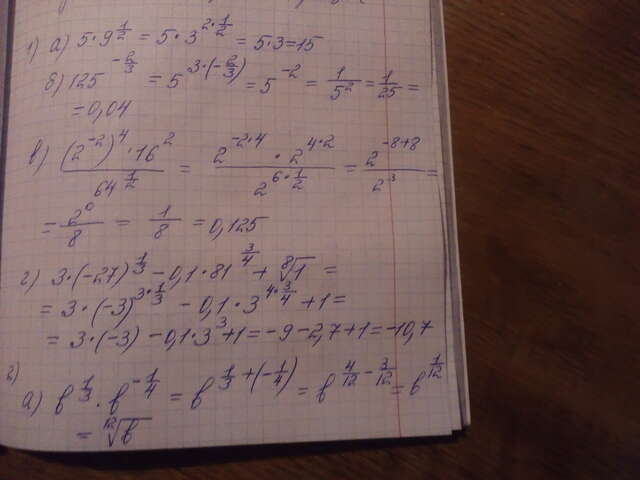 1) а) 5·9^(1/2) = 5·3^(2·1/2) = 5·3=15
б) 125^(-2/3) = 5^(3·(-2/3)) = 5^(-2) = 1/5^2 = 1/25 =
= 0,04
в) ((2^(-2))^4·16^2)/(64^(1/2)) = (2^(-2·4)·2^(4·2))/(2^(6·1/2)) = (2^(-8+8))/(2^3) =
= 2^0/8 = 1/8 = 0,125
г) 3·(-27)^(1/3) - 0,1·81^(3/4) + ⁸√1 =
= 3·(-3)^(3·1/3) - 0,1·3^(4·3/4) + 1 =
= 3·(-3) - 0,1·3^3+1 = -9-2,7+1=-10,7
2)
а) b^(1/3)·b^(-1/4) = b^(1/3+(-1/4)) = b^(4/12-3/12) = b^(1/12)
= ¹²√b